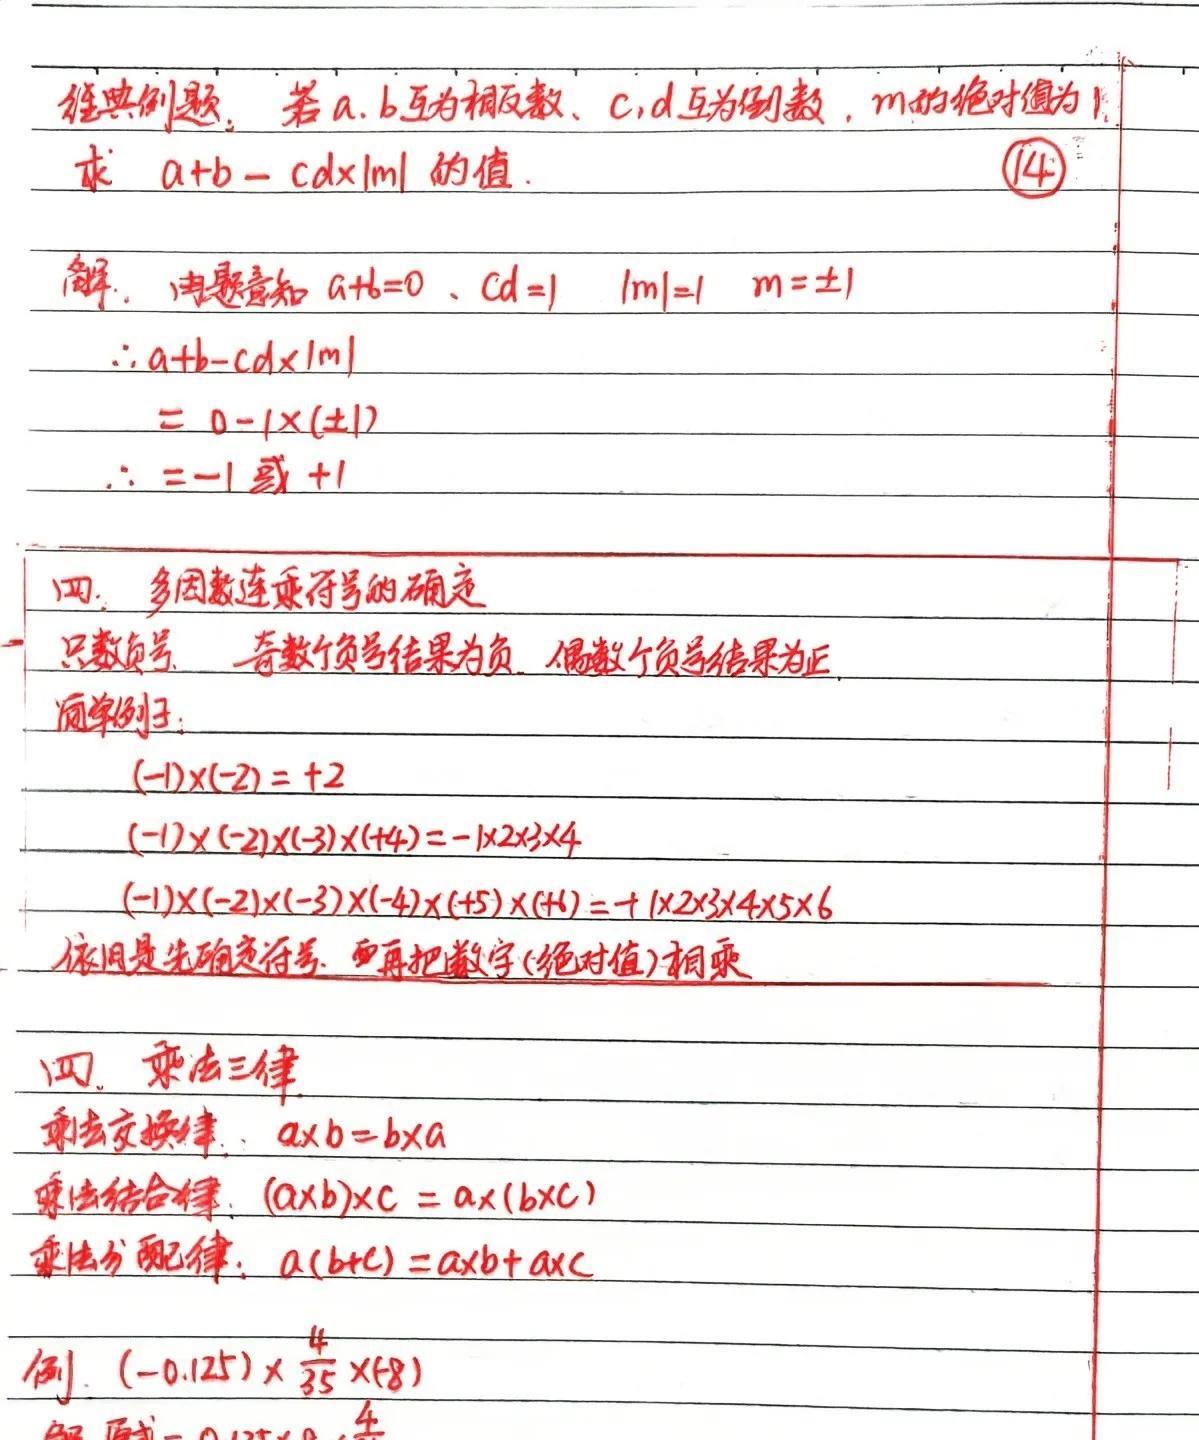 经典例题： 若a、b互为相反数、c,d互为倒数，m的绝对值为1
求 a+b-cd×|m| 的值.
⑭
解： 由题意知 a+b=0、cd=1 |m|=1 m=±1
∴a+b-cd×|m|
= 0-1×(±1)
∴ =-1 或 +1
四. 多因数连乘符号的确定
只数负号 奇数个负号结果为负 偶数个负号结果为正.
简单例子：
(-1)×(-2)=+2
(-1)×(-2)×(-3)×(+4)=-1×2×3×4
(-1)×(-2)×(-3)×(-4)×(+5)×(+6)=+1×2×3×4×5×6
依旧是先确定符号. 再把数字(绝对值)相乘
四. 乘法三律
乘法交换律： a×b=b×a
乘法结合律： (a×b)×c = a×(b×c)
乘法分配律： a(b+c)=a×b+a×c
例. (-0.125)×4/35×(-8)